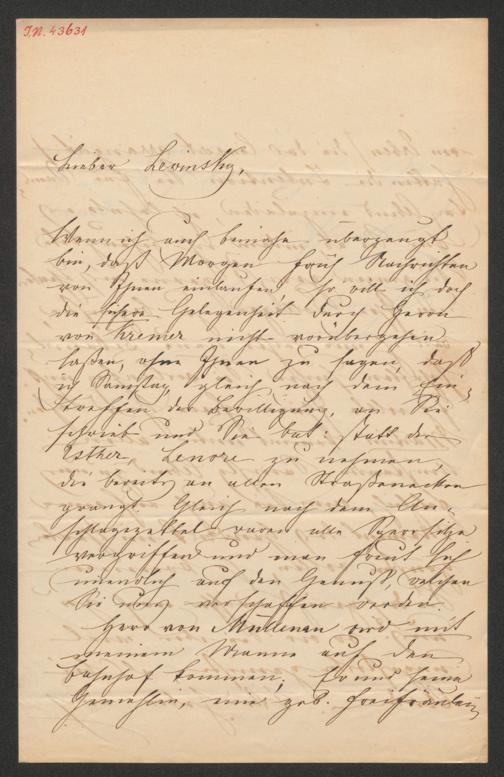 I.N. 43631
Lieber Lewinsky,
Wenn ich auch beinahe überzeugt
bin, daß Morgen früh Nachrichten
von Ihnen einlaufen, so will ich doch
die sichere Gelegenheit durch Herrn
von Kremer nicht vorübergehen
laßen, ohne Ihnen zu sagen, daß
ich Samstag, gleich nach dem Ein-
treffen der Bewilligung, an Sie
schrieb und Sie bat: statt der
Esther, Lenore zu nehmen,
die bereits an allen Straßenecken
prangt. Gleich nach dem An-
schlagzettel waren alle Sperrsitze
vergriffen und man freut sich
unendlich auf den Genuß, welchen
Sie uns verschaffen werden.
Herr von wird mit
meinem Manne auf den
Bahnhof kommen; Er und seine
Gemahlin, eine geb. Freifräulein